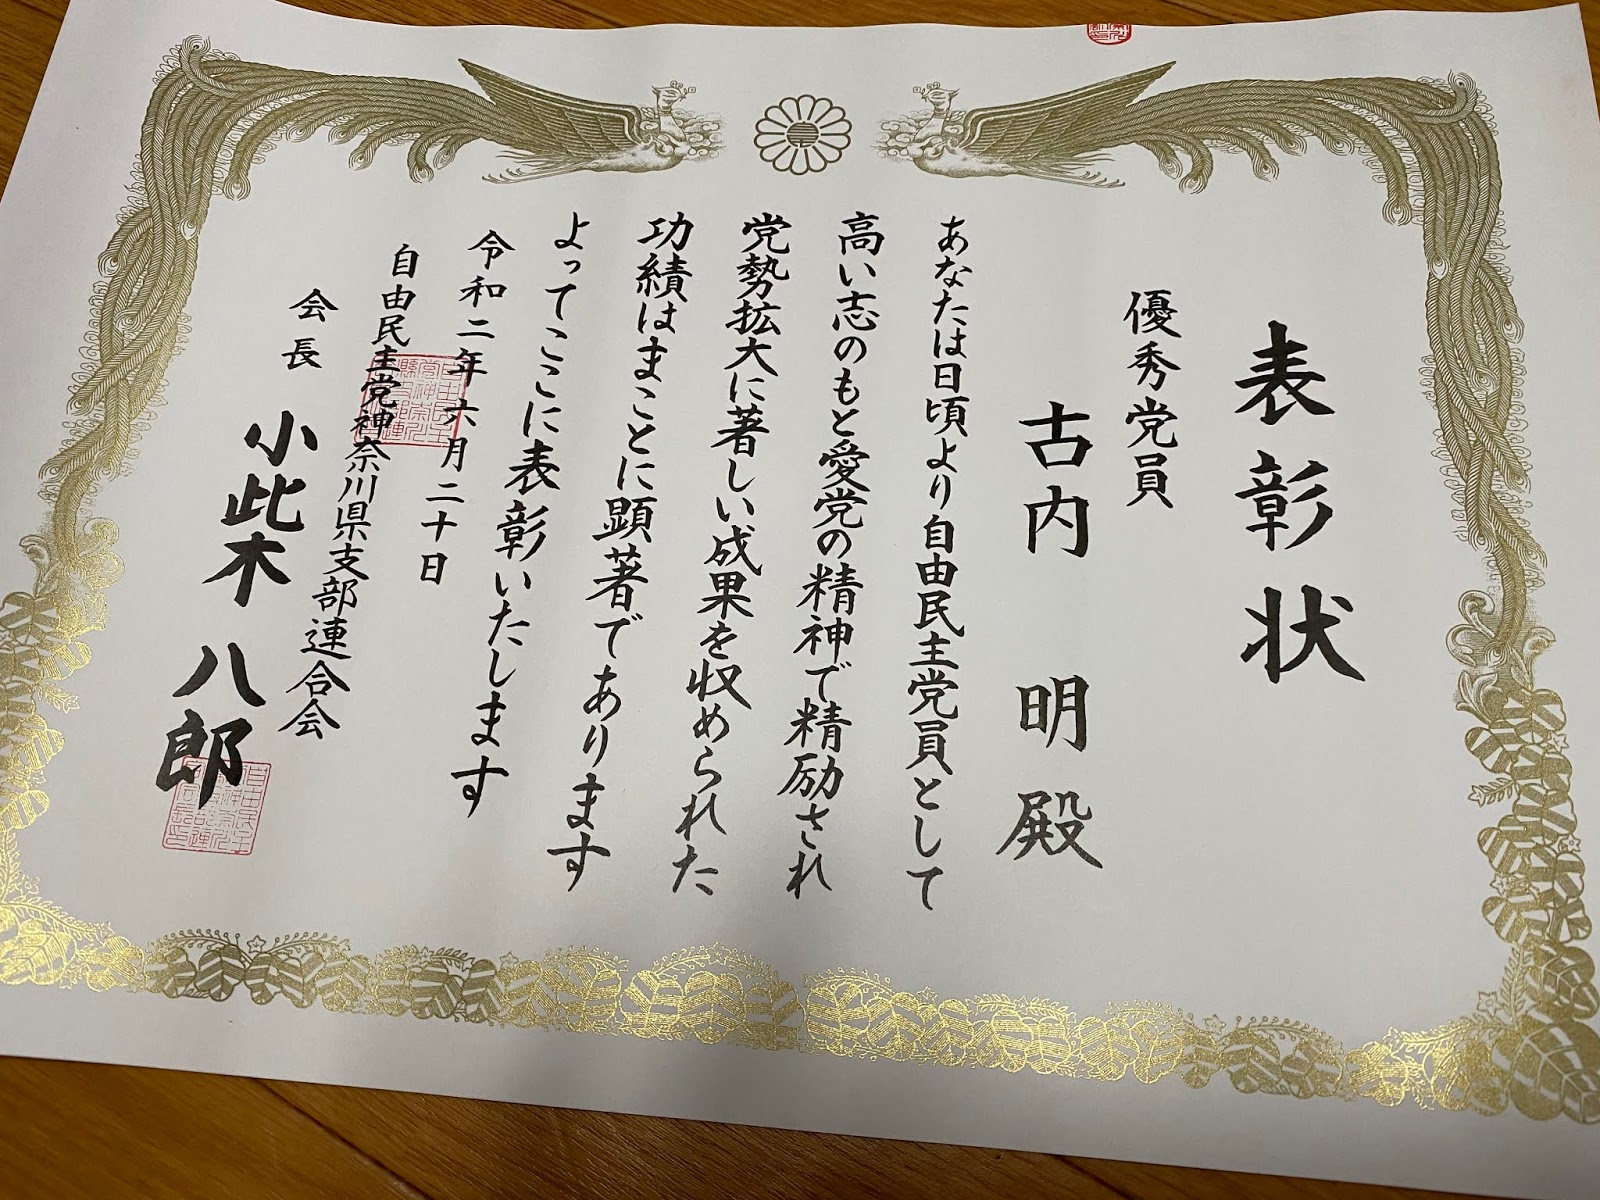 表彰状
優秀党員
古内 明 殿
あなたは日頃より自由民主党員として
高い志のもと愛党の精神で精励され
党勢拡大に著しい成果を収められた
功績はまことに顕著であります
よってここに表彰いたします
令和二年六月二十日
自由民主党神奈川県支部連合会
会長 小此木 八郎